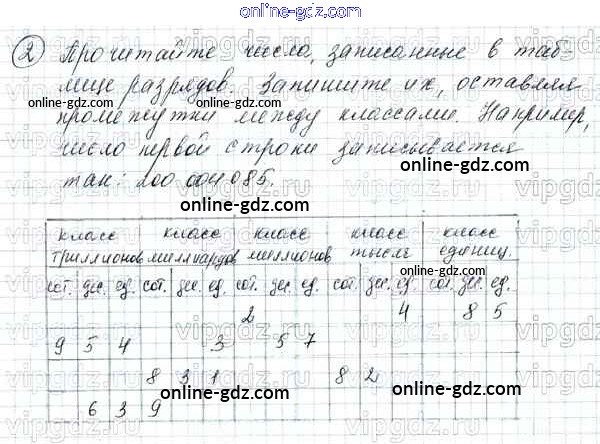 online-gdz.com
② Прочитайте числа, записанные в таб-
лице разрядов. Запишите их, оставляя
online-gdz.com online-gdz.com
промежутки между классами. Например,
число первой строки записывается
online-gdz.com
так: 200 004 085.
online-gdz.com
класс класс класс класс класс
триллионов миллиардов миллионов тысяч единиц.
online-gdz.com
сот. дес. ед. сот. дес. ед. сот. дес. ед. сот. дес. ед. сот. дес. ед.
2 4 8 5
9 5 4 3 5 7
online-gdz.com
8 3 1 8 2
online-gdz.com online-gdz.com
6 3 9
online-gdz.com